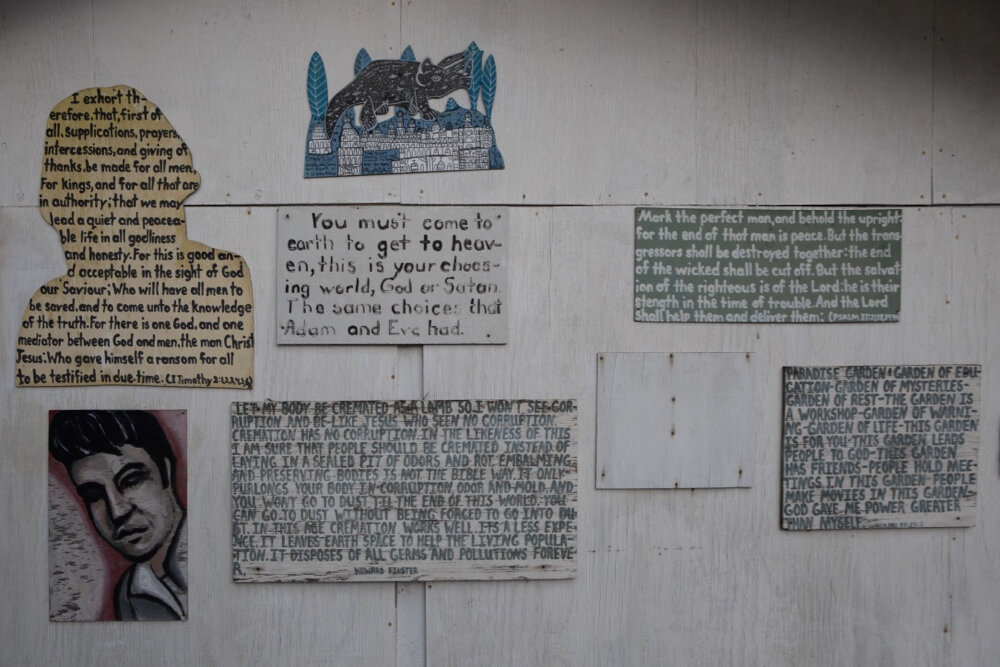 I exhort th-
erefore, that, first of
all, supplications, prayers,
intercessions, and giving of
thanks, be made for all men,
For kings, and for all that are
in authority; that we may
lead a quiet and peacea-
ble life in all godliness
and honesty. For this is good an-
d acceptable in the sight of God
our Saviour; Who will have all men to
be saved, and to come unto the knowledge
of the truth. For there is one God, and one
mediator between God and men, the man Christ
Jesus; Who gave himself a ransom for all
to be testified in due time.
You must come to
earth to get to heav-
en, this is your choos-
ing world, God or Satan.
The same choices that
Adam and Eve had.
Mark the perfect man, and behold the upright:
for the end of that man is peace. But the trans-
gressors shall be destroyed together: the end
of the wicked shall be cut off. But the salvat-
ion of the righteous is of the Lord: he is their
stength in the time of trouble. And the Lord
shall help them and deliver them:
LET MY BODY BE CREMATED AS A LAMB SO I WON'T SEE COR-
RUPTION AND BE LIKE JESUS WHO SEEN NO CORRUPTION.
CREMATION HAS NO CORRUPTION. IN THE LIKENESS OF THIS
I AM SURE THAT PEOPLE SHOULD BE CREMATED INSTEAD OF
LAYING IN A SEALED PIT OF ODORS AND ROT. EMBALMING
AND PRESERVING BODIES IS NOT THE BIBLE WAY. IT ONLY
PURLONGS YOUR BODY IN CORRUPTION, ODOR AND MOLD. AND
YOU WON'T GO TO DUST TILL THE END OF THIS WORLD. YOU
CAN GO TO DUST WITHOUT BEING FORCED TO GO INTO DU-
ST. IN THIS AGE CREMATION WORKS WELL. ITS A LESS EXPE-
NCE. IT LEAVES EARTH SPACE TO HELP THE LIVING POPULA-
TION. IT DISPOSES OF ALL GERMS AND POLLUTIONS FOREVE-
R
HOWARD FINSTER
PARADISE GARDEN: GARDEN OF EDU-
CATION-GARDEN OF MYSTERIES-
GARDEN OF REST-THE GARDEN IS
A WORKSHOP-GARDEN OF WARNI-
NG-GARDEN OF LIFE-THIS GARDEN
IS FOR YOU-THIS GARDEN LEADS
PEOPLE TO GOD-THIS GARDEN
HAS FRIENDS-PEOPLE HOLD MEE-
TINGS IN THIS GARDEN-PEOPLE
MAKE MOVIES IN THIS GARDEN-
GOD GAVE ME POWER GREATER
THAN MYSELF